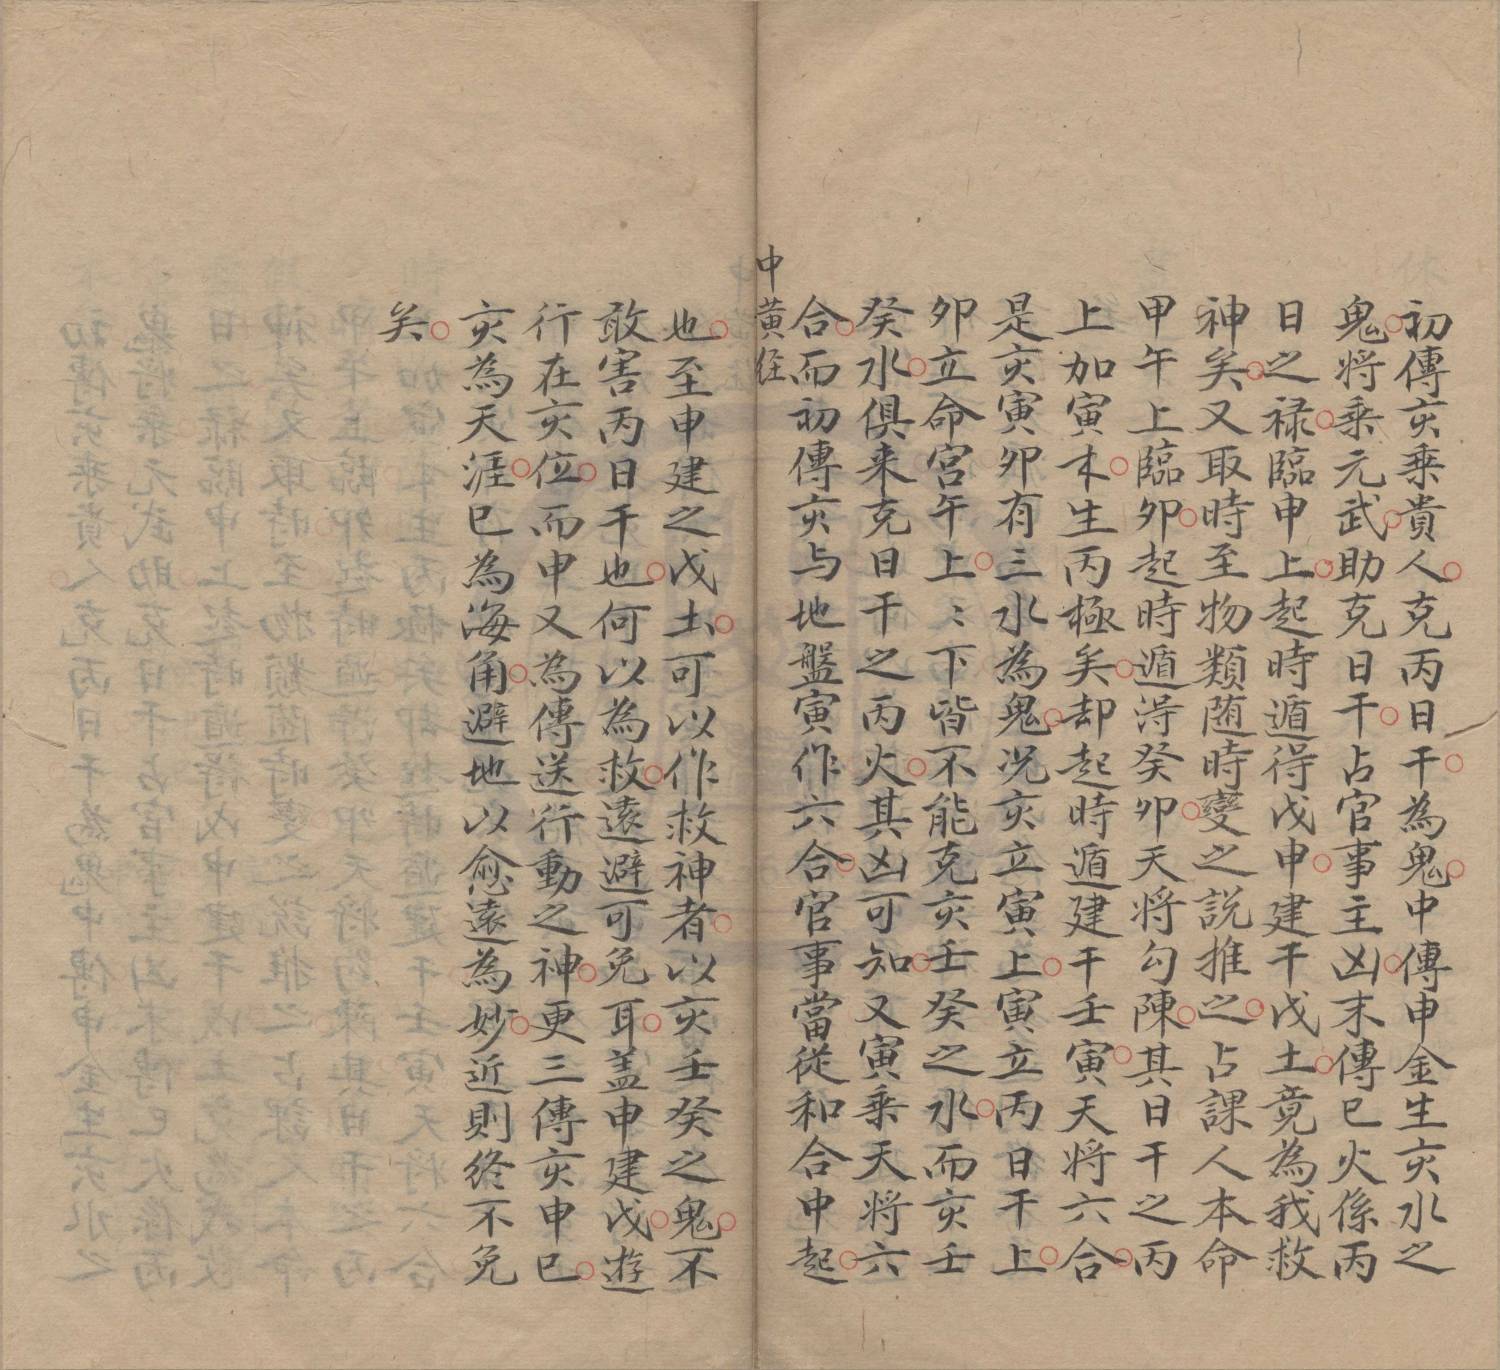 初傳亥乘貴人克丙日干為鬼中傳申金生亥水之
鬼將乘元武助克日干占官事主凶末傳巳火係丙
日之祿臨申上起時遁得戊申建干戊土竟為我救
神矣又取時至物類随時變之說推之占課人本命
甲午上臨卯起時遁得癸卯天將勾陳其日干之丙
上加寅木生丙極矣却起時遁建干壬寅天將六合
是亥寅卯有三水為鬼况亥立寅上寅立丙日干上
卯立命宮午上〻下皆不能克亥壬癸之水而亥壬
癸水俱来克日干之丙火其凶可知又寅乘天將六
合而初傳亥与地盤寅作六合官事當從和合中起
中黄经
也至申建之戊土可以作救神者以亥壬癸之鬼不
敢害丙日干也何以為救遠避可免耳盖申建戊遊
行在亥位而申又為傳送行動之神更三傳亥申巳
亥為天涯巳為海角避地以愈遠為妙近則終不免
矣